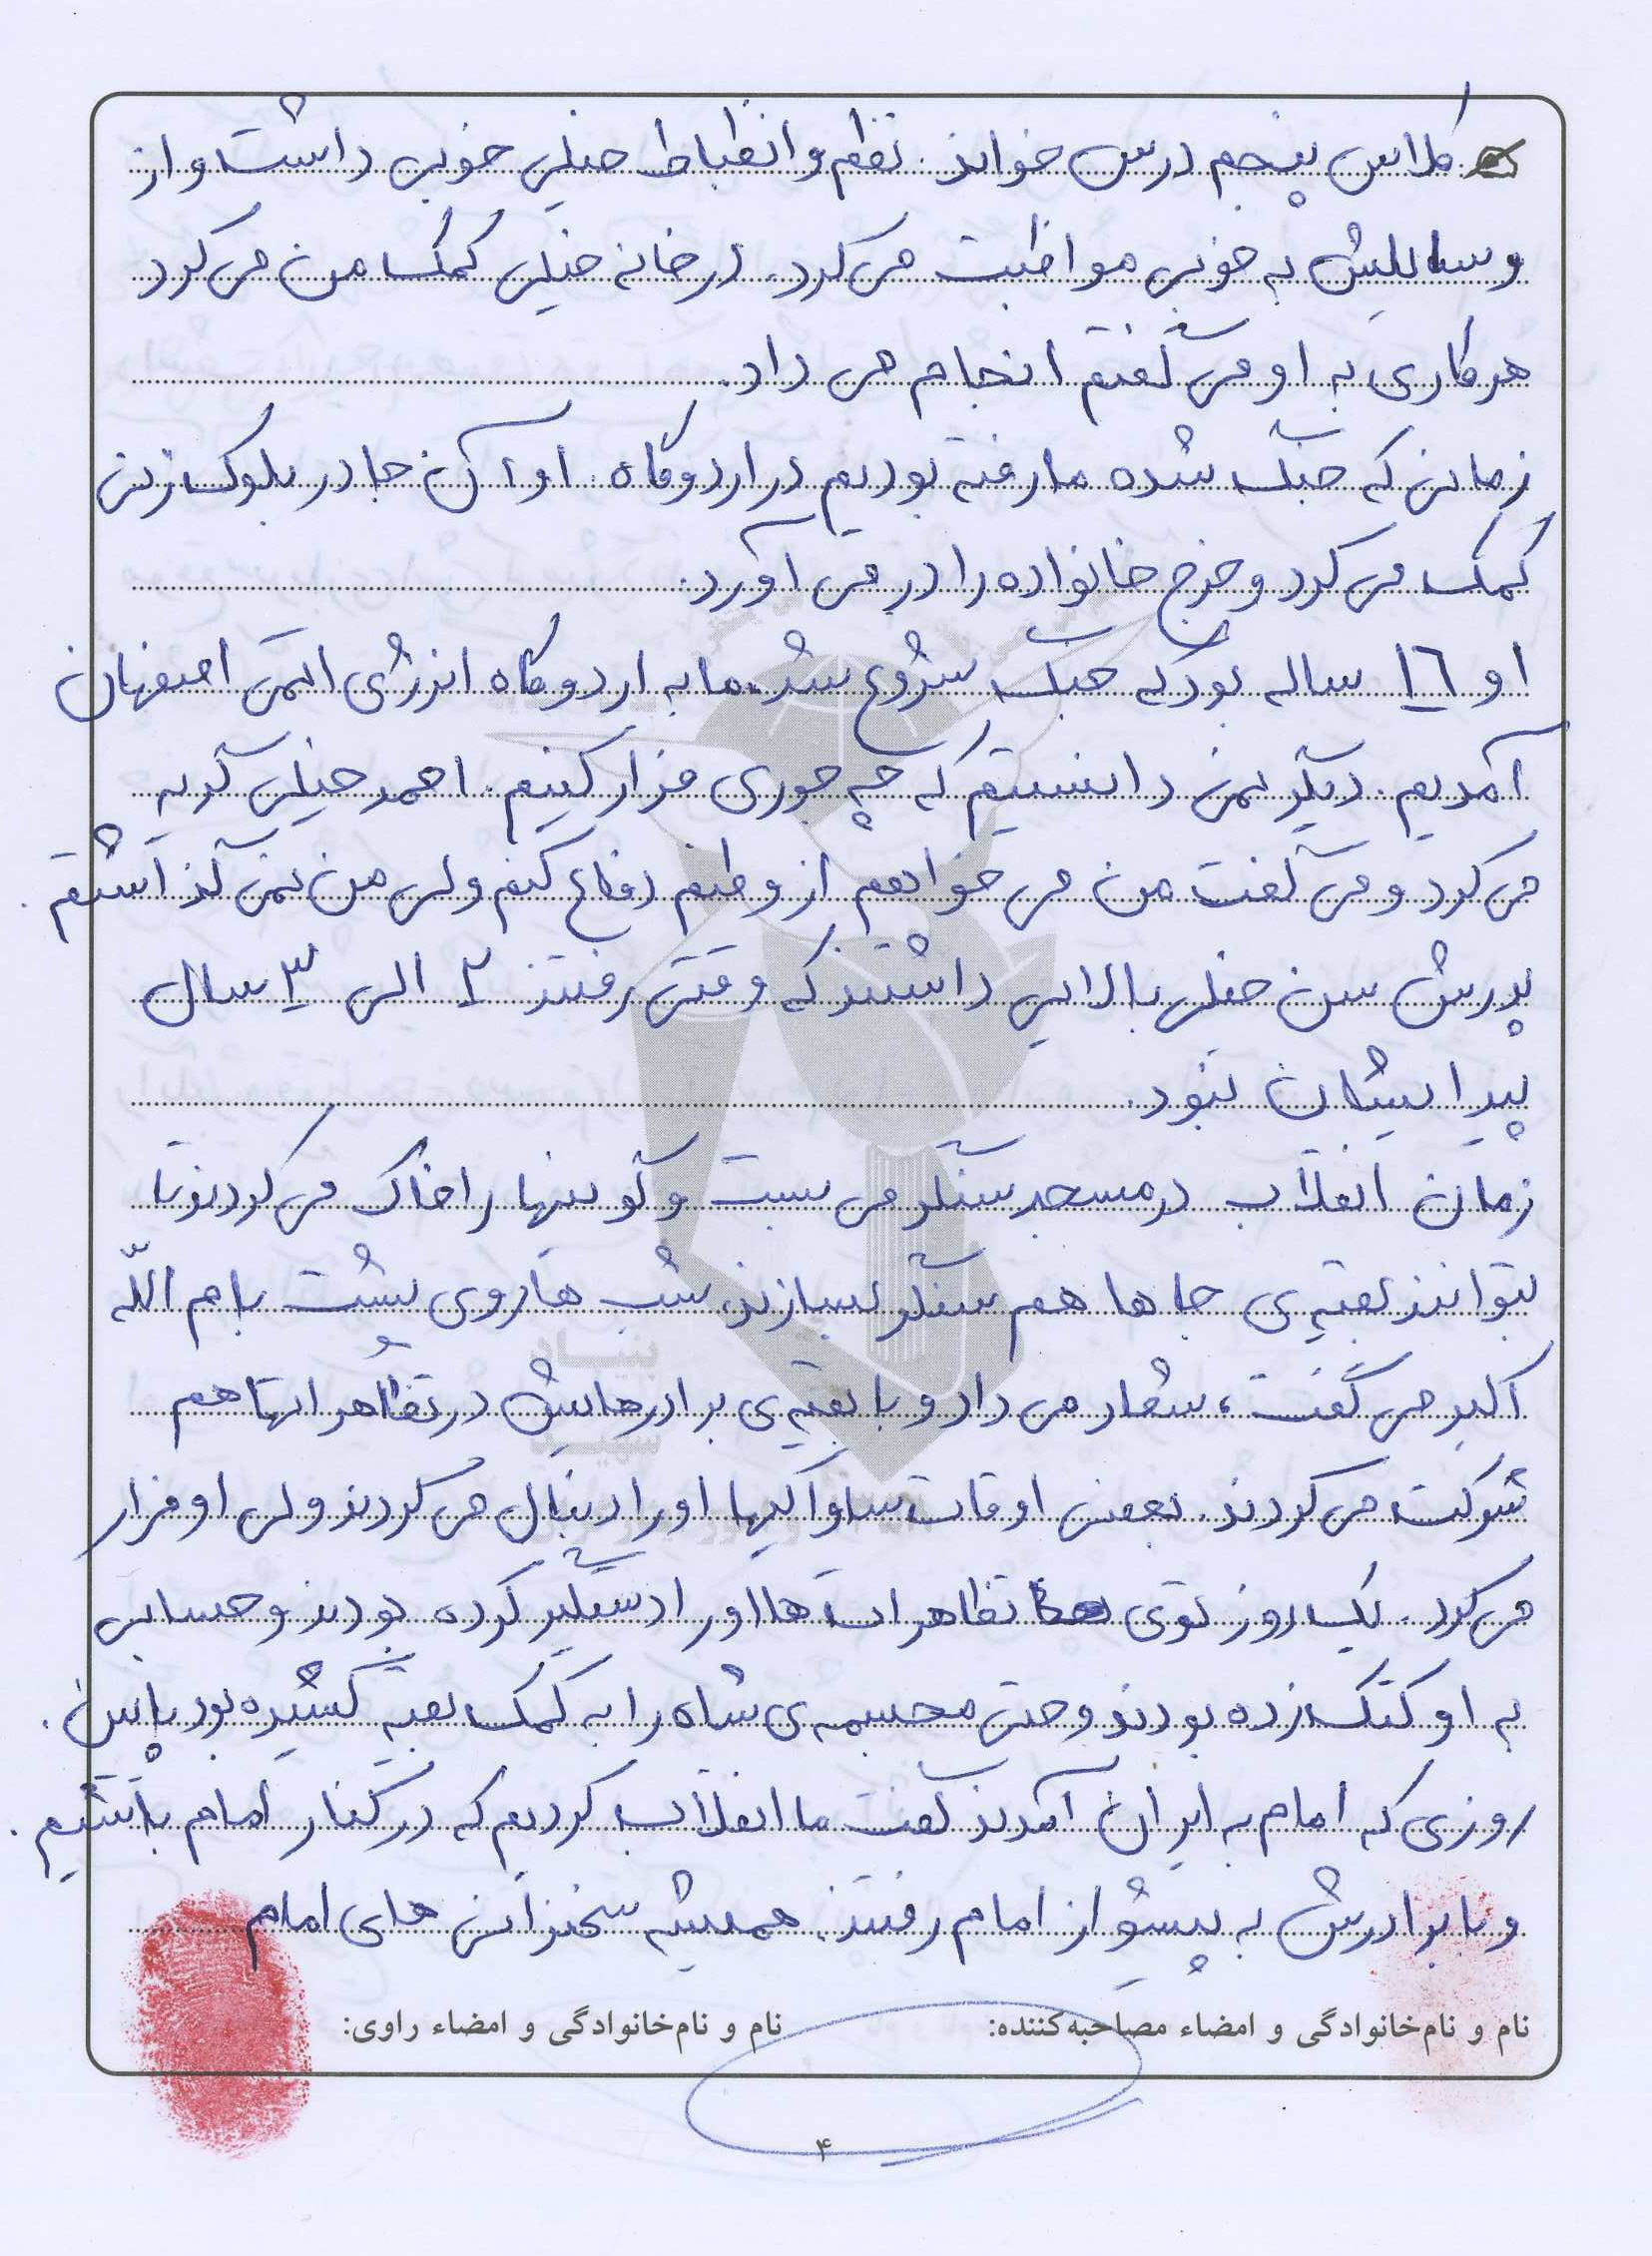 کلاس پنجم درس خواند. نظم و انظباط خیلی خوبی داشت و از
وسایلش به خوبی مواظبت می کرد. در خانه خیلی کمک من می کرد
هر کاری به او می گفتم انجام می داد.
زمانی که جنگ شده ما رفته بودیم در اردوگاه. او آن جا در بلوک زنی
کمک می کرد و خرج خانواده را در می آورد.
او ۱۶ ساله بود که جنگ شروع شد. ما به اردوگاه انرژی اتمی اصفهان
آمدیم. دیگر نمی دانستیم که چه جوری فرار کنیم. احمد خیلی گریه
می کرد و می گفت من می خواهم از وطنم دفاع کنم ولی من نمی گذاشتم.
پدرش سن خیلی بالایی داشتند که وقتی رفتند ۲ الی ۳ سال
پیدایشان نبود.
زمان انقلاب در مسجد سنگر می بست و گونیها را خاک می کردند تا
بتوانند بقیه ی جاها هم سنگر بسازند. شب ها روی پشت بام الله
اکبر می گفت، شعار می داد و با بقیه ی برادرهایش در تظاهراتها هم
شرکت می کردند. بعضی اوقات ساواکیها او را دنبال می کردند ولی او فرار
می کرد. یک روز توی تظاهرات ها او را دستگیر کرده بودند و حسابی
به او کتک زده بودند و حتی مجسمه ی شاه را به کمک بقیه کشیده بود پایین.
روزی که امام به ایران آمدند گفت ما انقلاب کردیم که در کنار امام باشیم.
و با برادرش به پیشواز امام رفتند. همیشه سخنرانی های امام
نام و نام‌خانوادگی و امضاء مصاحبه‌کننده: نام و نام‌خانوادگی و امضاء راوی:
۴
بنیاد
شهید